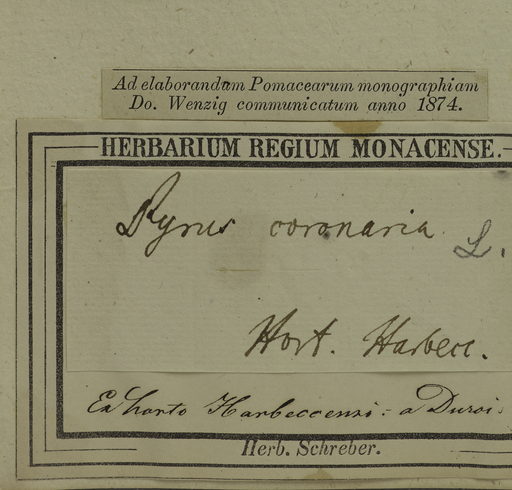 Ad elaborandam Pomacearum monographiam
Do. Wenzig communicatum anno 1874.
HERBARIUM REGIUM MONACENSE.
Pyrus coronaria L.
Hort. Harbecc.
Ex horto Harbeccensi: a Duroi.
Herb. Schreber.